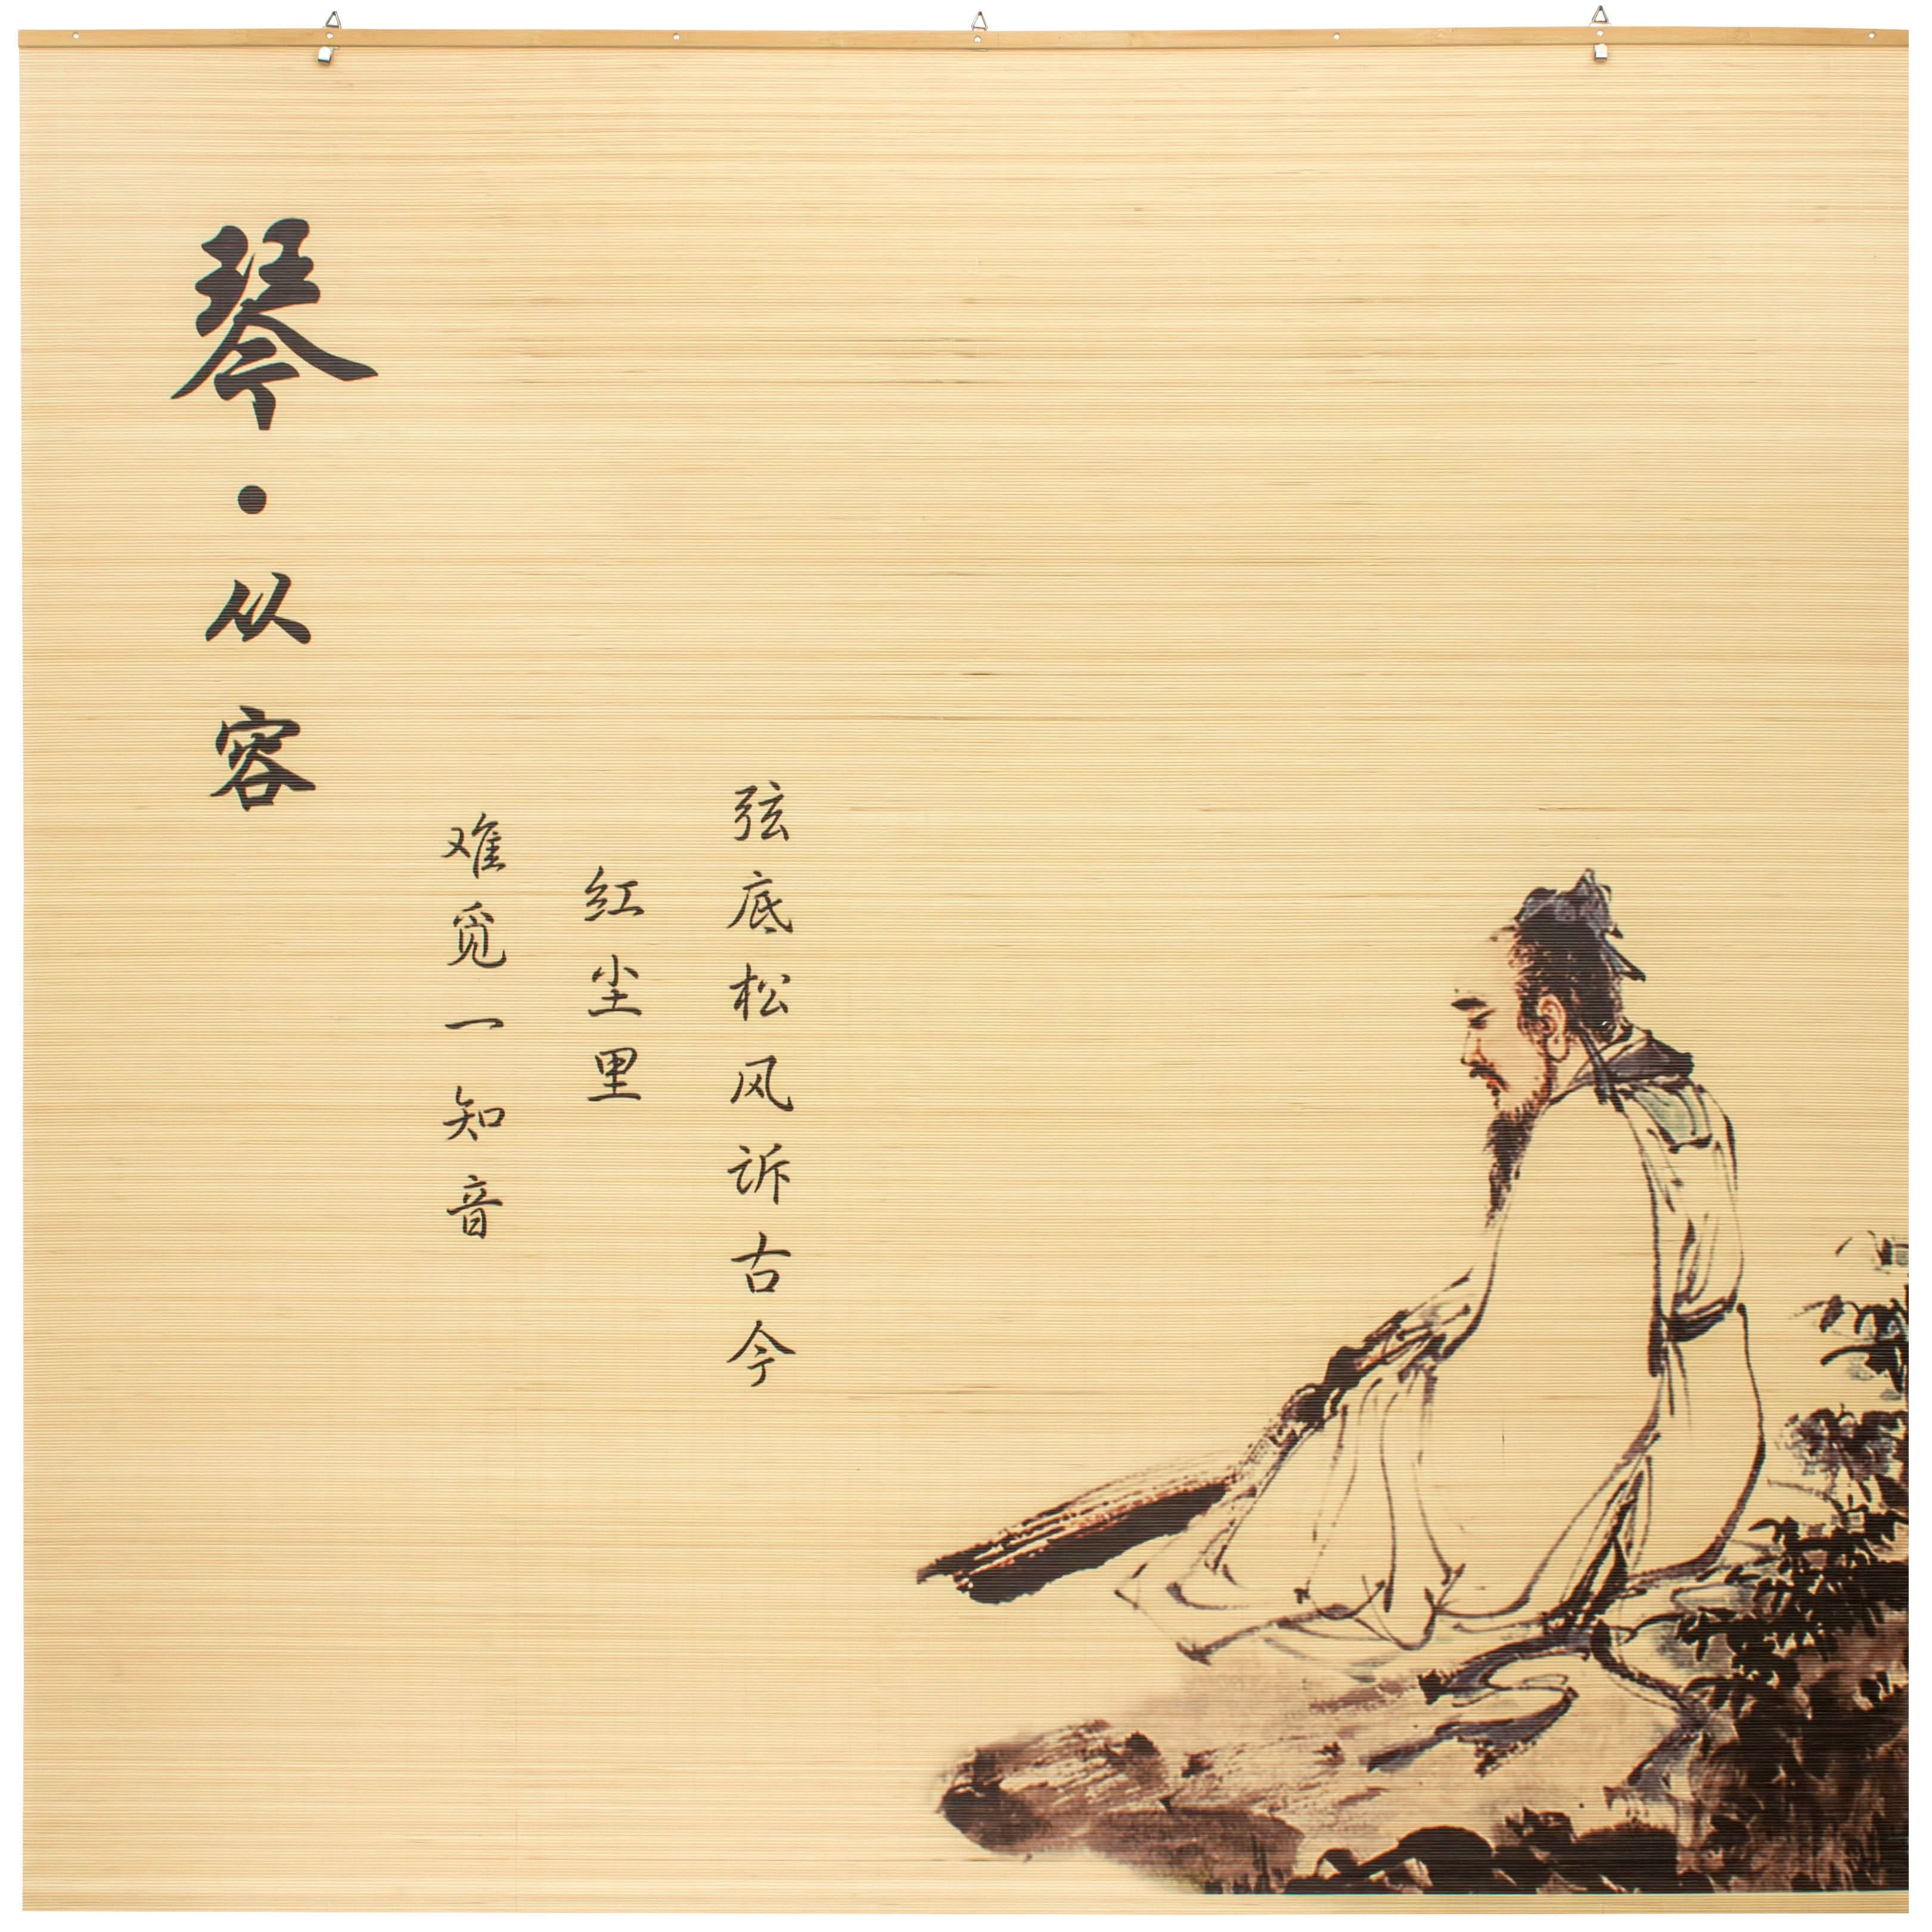 琴·从容
弦底松风诉古今
红尘里
难觅一知音